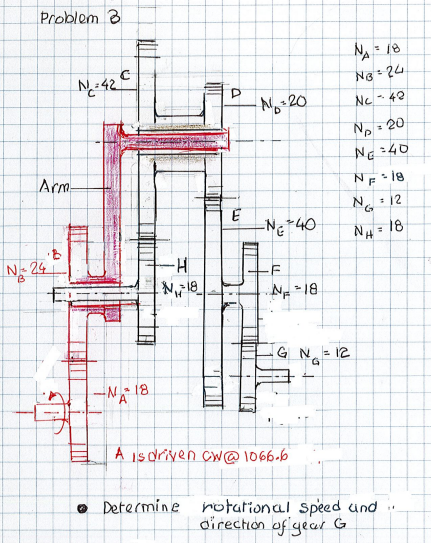 Problem 3
C
N_C=42
D
N_D=20
N_A=18
N_B=24
N_C-42
N_D=20
N_E=40
N_F=18
N_G=12
N_H=18
Arm
E
N_E=40
B
N_B=24
H
N_H=18
F
N_F=18
G N_G=12
A
N_A=18
A is driven cw@1066.6
Determine rotational speed and
direction of gear G